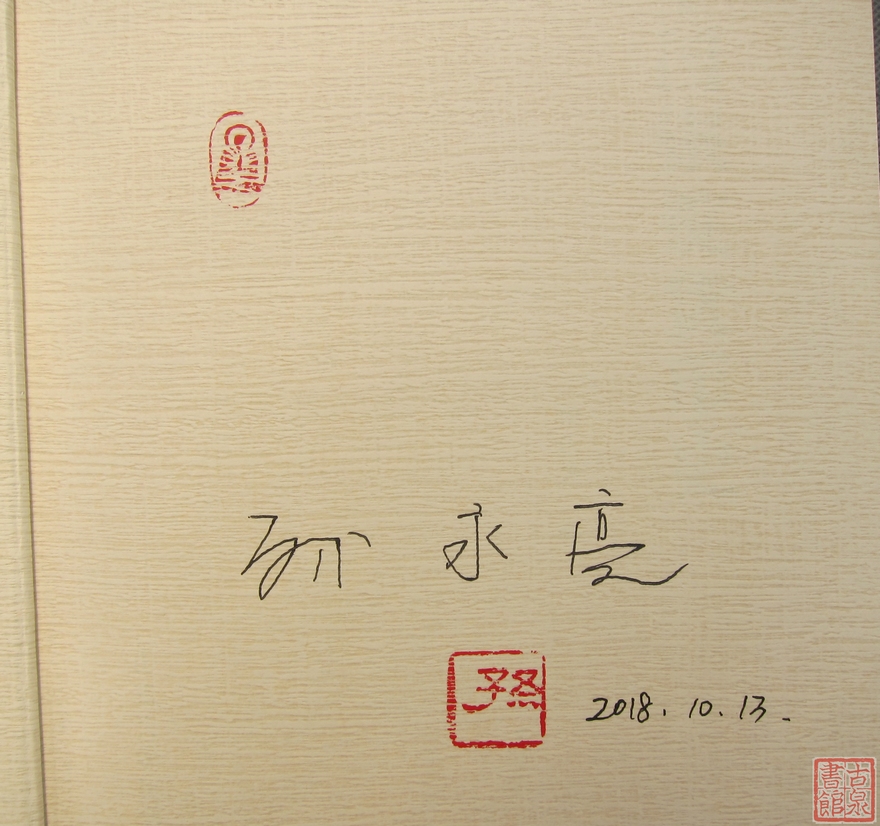 孙永亮
2018.10.13.
古泉書館